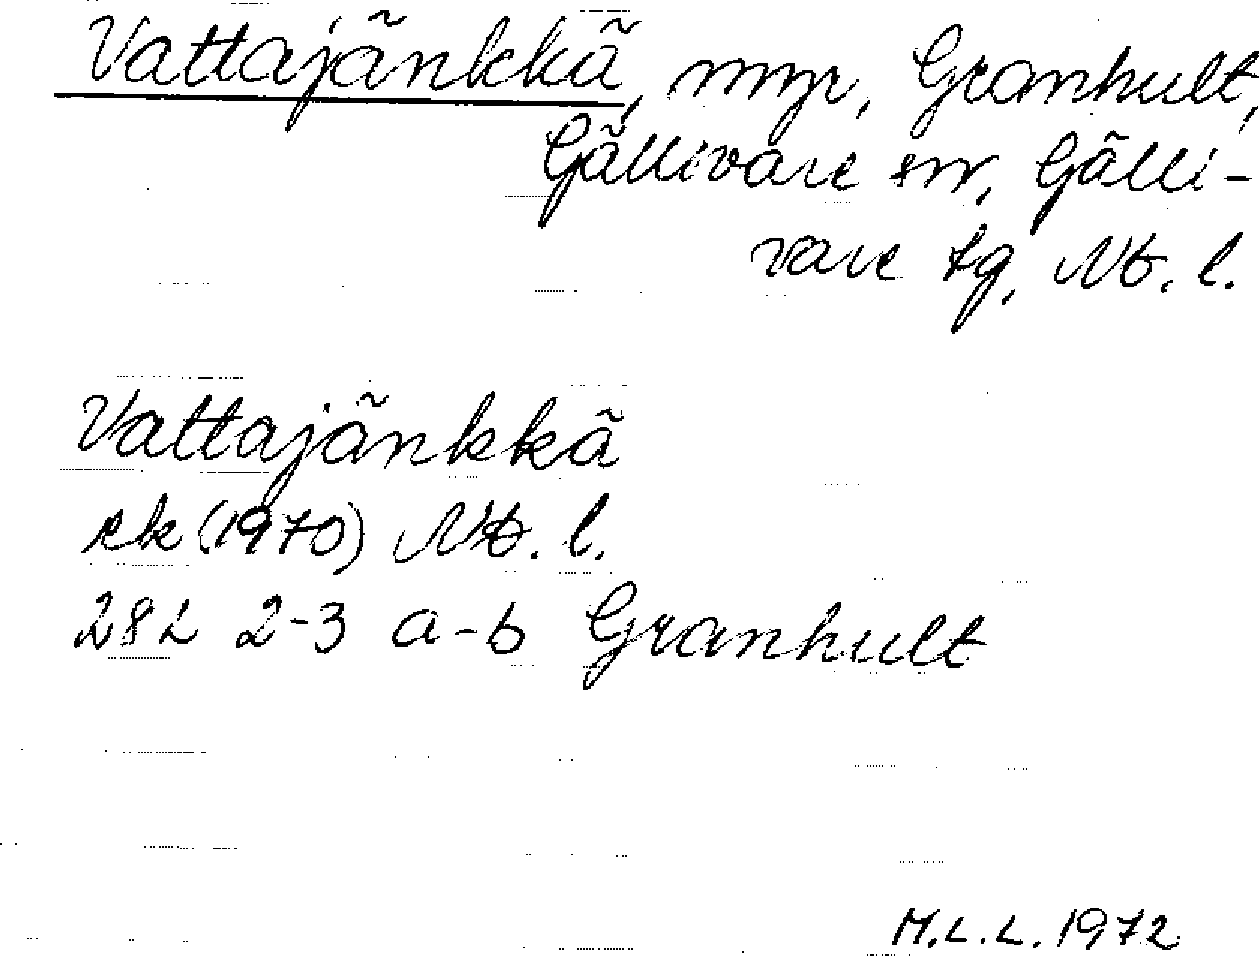 Vattajänkkä, myr, Granhult,
Gällivare sn, Gälli-
vare tg, Nb. l.
Vattajänkkä
ek (1970) Nb. l.
28L 2-3 a-b Granhult
M.L.L. 1972